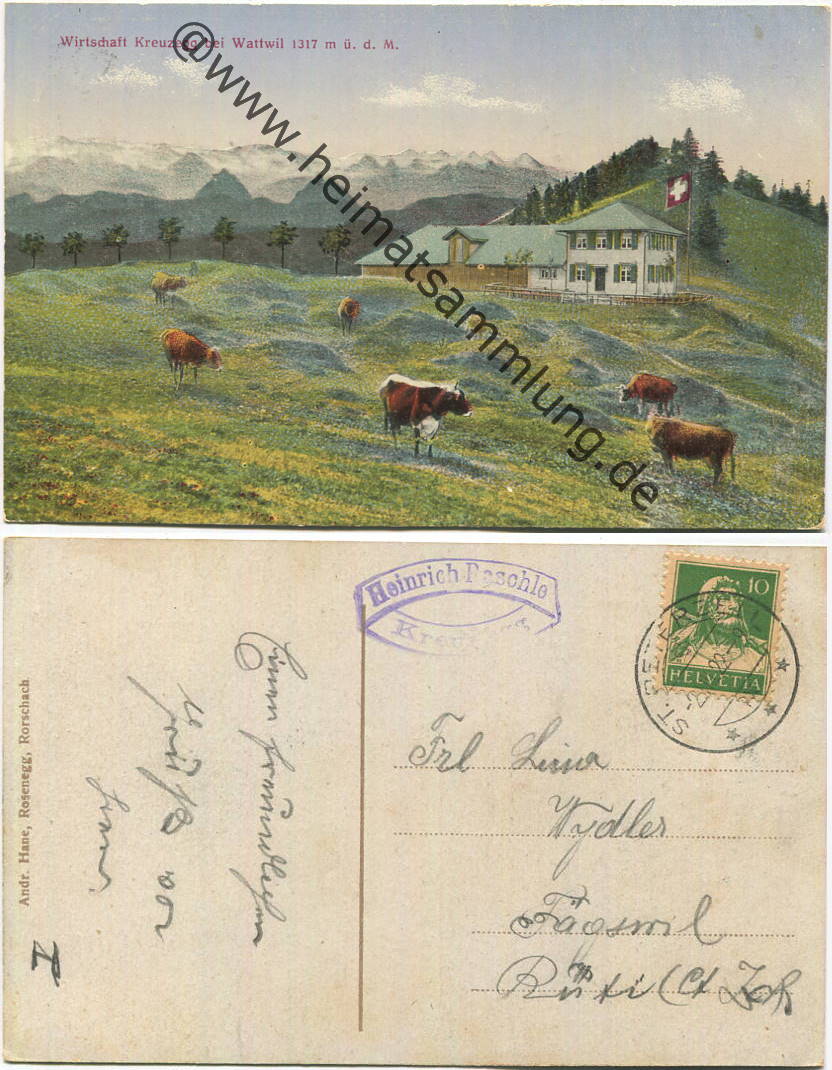 Wirtschaft Kreuzegg bei Wattwil 1317 m ü. d. M.
@www.heimatsammlung.de
Heinrich Paschle
Kreuz
10
HELVETIA
ST. PETERZELL
Andr. Hane, Rosenegg, Rorschach
Einen freundlichen
Gruss von
Frl Lina
Wydler
Fägswil
Rüti (Ct Zch
I